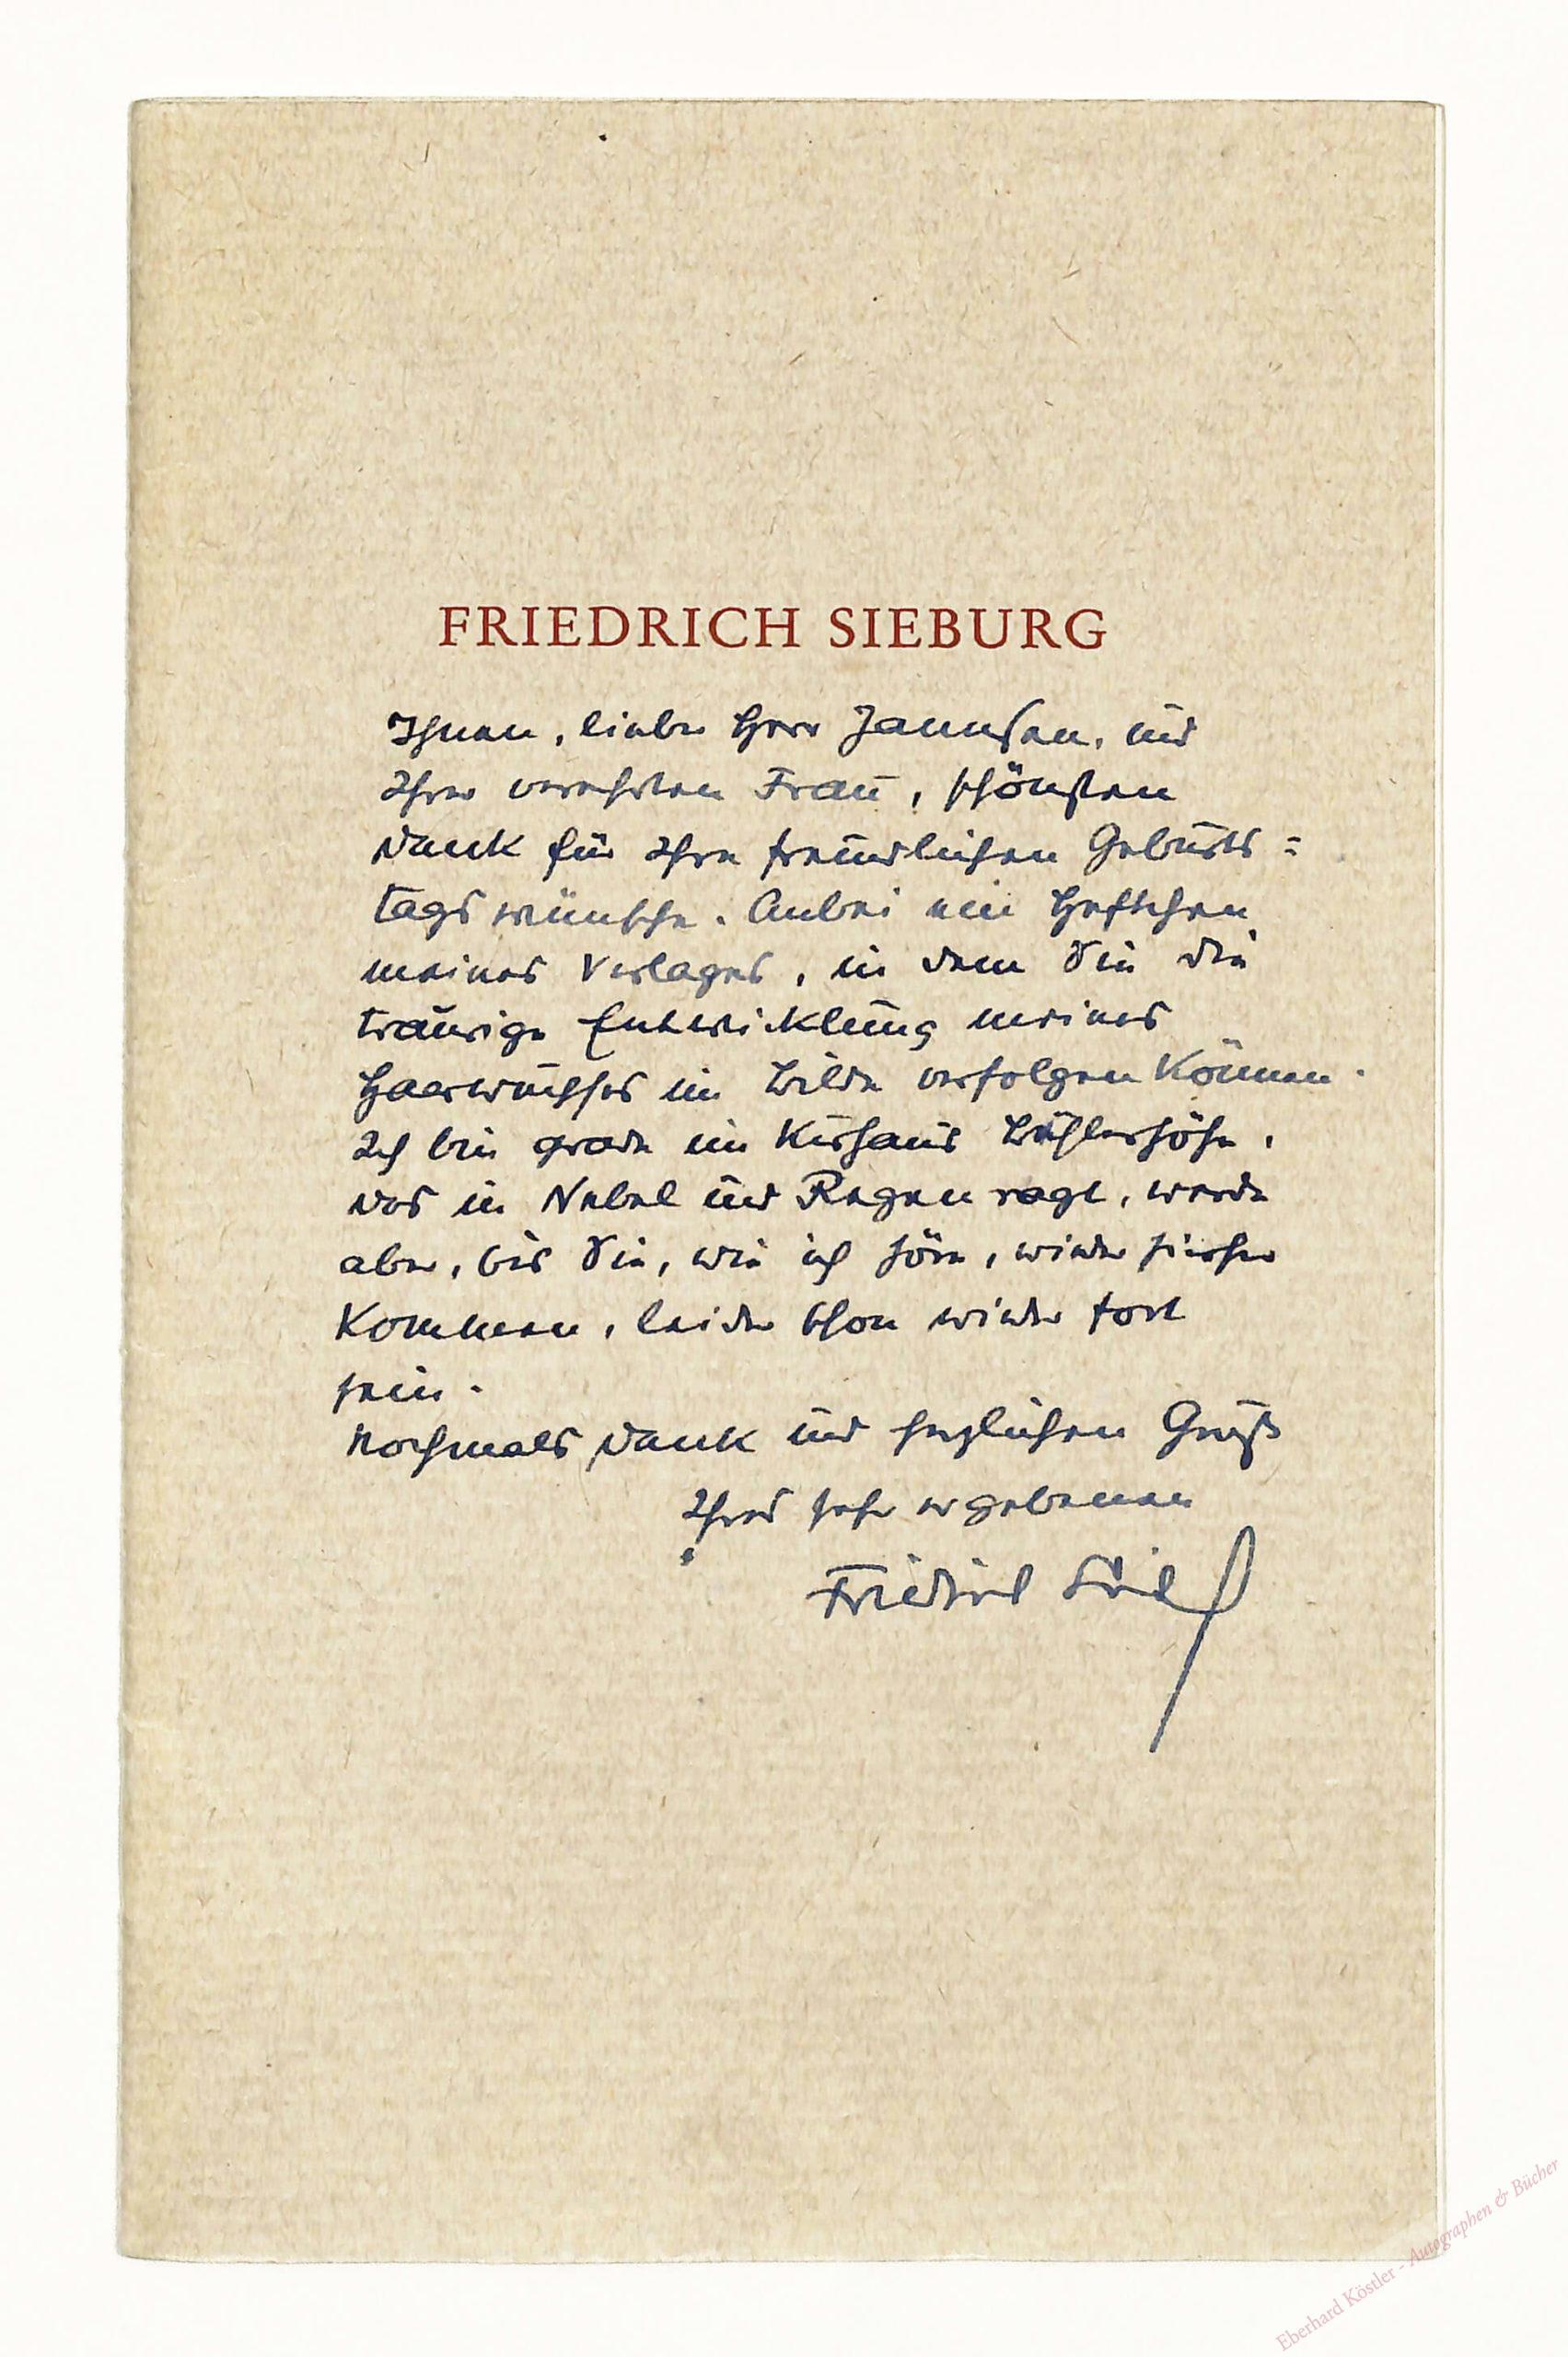 FRIEDRICH SIEBURG
Ihnen, lieber Herr Jannsen, und
Ihrer verehrten Frau, schönsten
Dank für Ihre freundlichen Geburts=
tagswünsche. Anbei ein Heftchen
meines Verlages, in dem Sie die
traurige Entwicklung meines
Haarwuchses im Bilde verfolgen können.
Ich bin grade im Kurhaus Bühlerhöhe,
das in Nebel und Regen ragt, werde
aber, bis Sie, wie ich höre, wieder hierher
kommen, leider schon wieder fort
sein.
Nochmals Dank und herzlichen Gruß
Ihres sehr ergebenen
Friedrich Sieburg
Eberhard Köstler - Autographen & Bücher